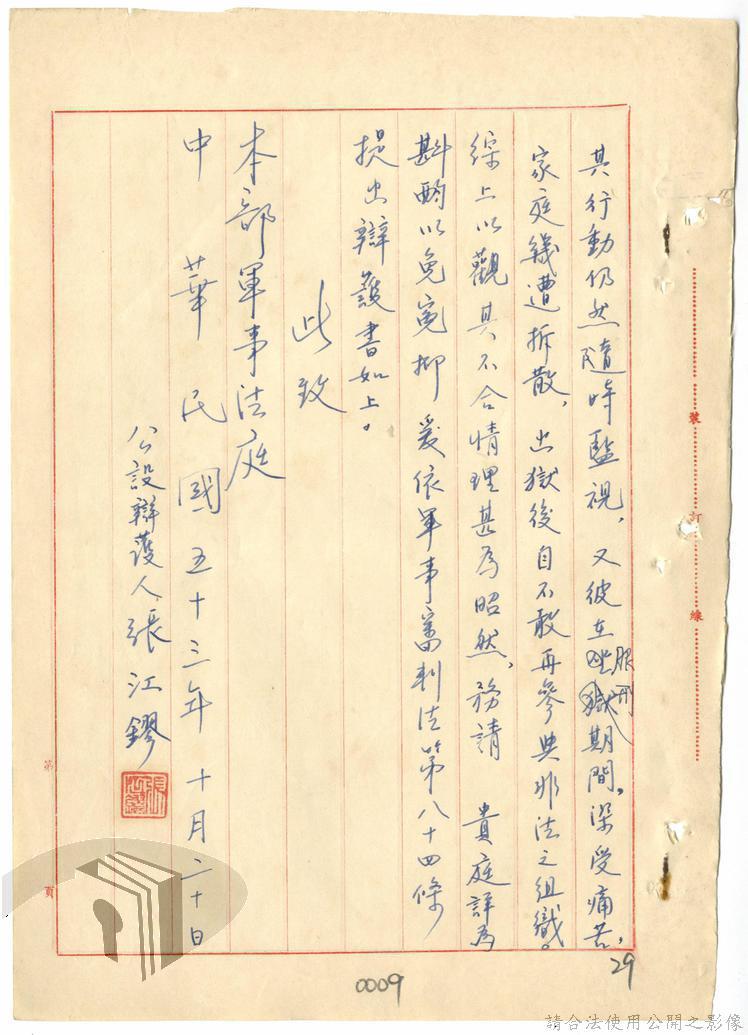 其行動仍然隨時監視，又彼在服刑期間，深受痛苦，
家庭幾遭拆散，出獄後自不敢再參與非法之組織。
綜上以觀其不合情理甚為昭然，務請　貴庭詳為
斟酌以免冤抑爰依軍事審判法第八十四條
提出辯護書如上。
此致
本部軍事法庭
中華民國五十三年十月二十日
公設辯護人張江鏐
裝訂線
第　頁
29
0009
請合法使用公開之影像